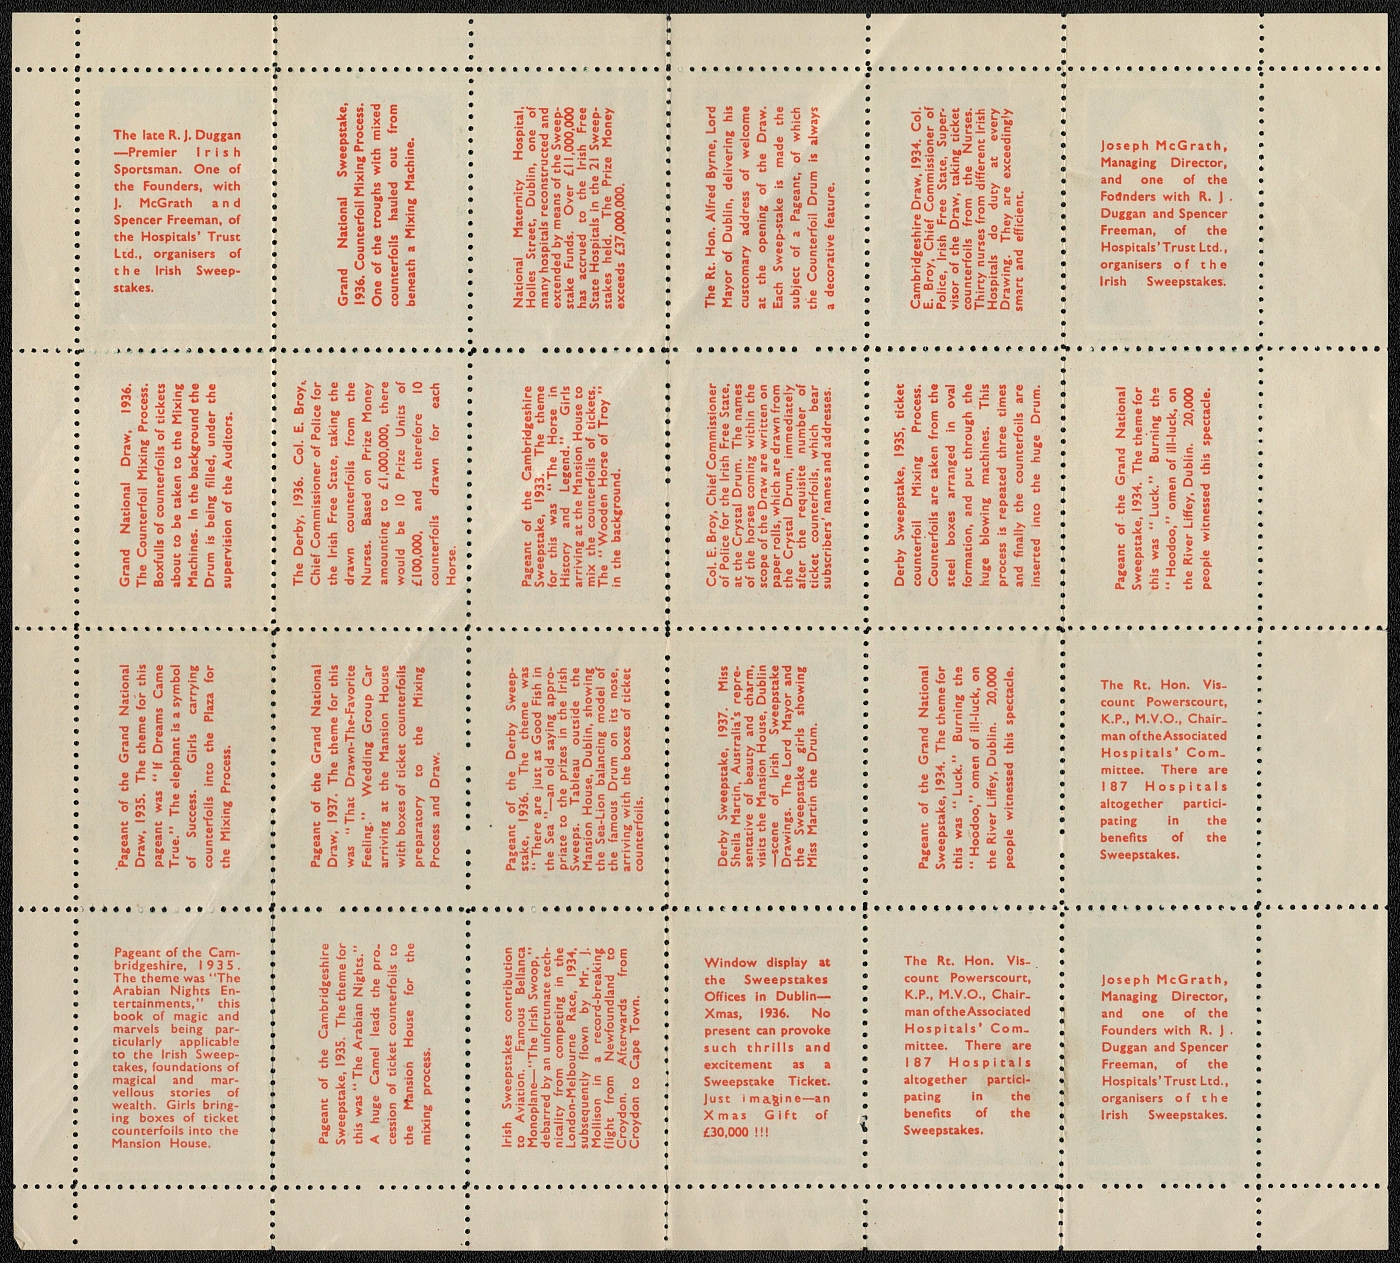 The late R. J. Duggan
—Premier Irish
Sportsman. One of
the Founders, with
J. McGrath and
Spencer Freeman, of
the Hospitals' Trust
Ltd., organisers of
the Irish Sweep-
stakes.
Grand National Sweepstake,
1936. Counterfoil Mixing Process.
One of the troughs with mixed
counterfoils hauled out from
beneath a Mixing Machine.
National Maternity Hospital,
Holles Street, Dublin, one of
many hospitals reconstructed and
extended by means of the Sweep-
stake Funds. Over £11,000,000
has accrued to the Irish Free
State Hospitals in the 21 Sweep-
stakes held. The Prize Money
exceeds £37,000,000.
The Rt. Hon. Alfred Byrne, Lord
Mayor of Dublin, delivering his
customary address of welcome
at the opening of the Draw.
Each Sweep-stake is made the
subject of a Pageant, of which
the Counterfoil Drum is always
a decorative feature.
Cambridgeshire Draw, 1934. Col.
E. Broy, Chief Commissioner of
Police, Irish Free State, Super-
visor of the Draw, taking ticket
counterfoils from the Nurses.
Thirty nurses from different Irish
Hospitals do duty at every
Drawing. They are exceedingly
smart and efficient.
Joseph McGrath,
Managing Director,
and one of the
Founders with R. J.
Duggan and Spencer
Freeman, of the
Hospitals' Trust Ltd.,
organisers of the
Irish Sweepstakes.
Grand National Draw, 1936.
The Counterfoil Mixing Process.
Boxfulls of counterfoils of tickets
about to be taken to the Mixing
Machines. In the background the
Drum is being filled, under the
supervision of the Auditors.
The Derby, 1936. Col. E. Broy,
Chief Commissioner of Police for
the Irish Free State, taking the
drawn counterfoils from the
Nurses. Based on Prize Money
amounting to £1,000,000, there
would be 10 Prize Units of
£100,000, and therefore 10
counterfoils drawn for each
Horse.
Pageant of the Cambridgeshire
Sweepstake, 1933. The theme
for this was "The Horse in
History and Legend." Girls
arriving at the Mansion House to
mix the counterfoils of tickets.
The "Wooden Horse of Troy"
in the background.
Col. E. Broy, Chief Commissioner
of Police for the Irish Free State,
at the Crystal Drum. The names
of the horses coming within the
scope of the Draw are written on
paper rolls, which are drawn from
the Crystal Drum, immediately
after the requisite number of
ticket counterfoils, which bear
subscribers' names and addresses.
Derby Sweepstake, 1935, ticket
counterfoil Mixing Process.
Counterfoils are taken from the
steel boxes arranged in oval
formation, and put through the
huge blowing machines. This
process is repeated three times
and finally the counterfoils are
inserted into the huge Drum.
Pageant of the Grand National
Sweepstake, 1934. The theme for
this was "Luck." Burning the
"Hoodoo," omen of ill-luck, on
the River Liffey, Dublin. 20,000
people witnessed this spectacle.
Pageant of the Grand National
Draw, 1935. The theme for this
pageant was "If Dreams Came
True." The elephant is a symbol
of Success. Girls carrying
counterfoils into the Plaza for
the Mixing Process.
Pageant of the Grand National
Draw, 1937. The theme for this
was "That Drawn-The-Favorite
Feeling." Wedding Group Car
arriving at the Mansion House
with boxes of ticket counterfoils
preparatory to the Mixing
Process and Draw.
Pageant of the Derby Sweep-
stake, 1936. The theme was
"There are just as Good Fish in
the Sea"—an old saying appro-
priate to the prizes in the Irish
Sweeps. Tableau outside the
Mansion House, Dublin, showing
the Sea-Lion balancing model of
the famous Drum on its nose,
arriving with the boxes of ticket
counterfoils.
Derby Sweepstake, 1937. Miss
Sheila Martin, Australia's repre-
sentative of beauty and charm,
visits the Mansion House, Dublin
—scene of Irish Sweepstake
Drawings. The Lord Mayor and
the Sweepstake girls showing
Miss Martin the Drum.
Pageant of the Grand National
Sweepstake, 1934. The theme for
this was "Luck." Burning the
"Hoodoo," omen of ill-luck, on
the River Liffey, Dublin. 20,000
people witnessed this spectacle.
The Rt. Hon. Vis-
count Powerscourt,
K.P., M.V.O., Chair-
man of the Associated
Hospitals' Com-
mittee. There are
187 Hospitals
altogether partici-
pating in the
benefits of the
Sweepstakes.
Pageant of the Cam-
bridgeshire, 1935.
The theme was "The
Arabian Nights En-
tertainments," this
book of magic and
marvels being par-
ticularly applicable
to the Irish Sweep-
takes, foundations of
magical and mar-
vellous stories of
wealth. Girls bring-
ing boxes of ticket
counterfoils into the
Mansion House.
Pageant of the Cambridgeshire
Sweepstake, 1935. The theme for
this was "The Arabian Nights."
A huge Camel leads the pro-
cession of ticket counterfoils to
the Mansion House for the
mixing process.
Irish Sweepstakes contribution
to Aviation. Famous Bellanca
Monoplane—"The Irish Swoop,"
debarred by an unfortunate tech-
nicality from competing in the
London-Melbourne Race, 1934,
subsequently flown by Mr. J.
Mollison in a record-breaking
flight from Newfoundland to
Croydon. Afterwards from
Croydon to Cape Town.
Window display at
the Sweepstakes
Offices in Dublin—
Xmas, 1936. No
present can provoke
such thrills and
excitement as a
Sweepstake Ticket.
Just imagine—an
Xmas Gift of
£30,000 !!!
The Rt. Hon. Vis-
count Powerscourt,
K.P., M.V.O., Chair-
man of the Associated
Hospitals' Com-
mittee. There are
187 Hospitals
altogether partici-
pating in the
benefits of the
Sweepstakes.
Joseph McGrath,
Managing Director,
and one of the
Founders with R. J.
Duggan and Spencer
Freeman, of the
Hospitals' Trust Ltd.,
organisers of the
Irish Sweepstakes.